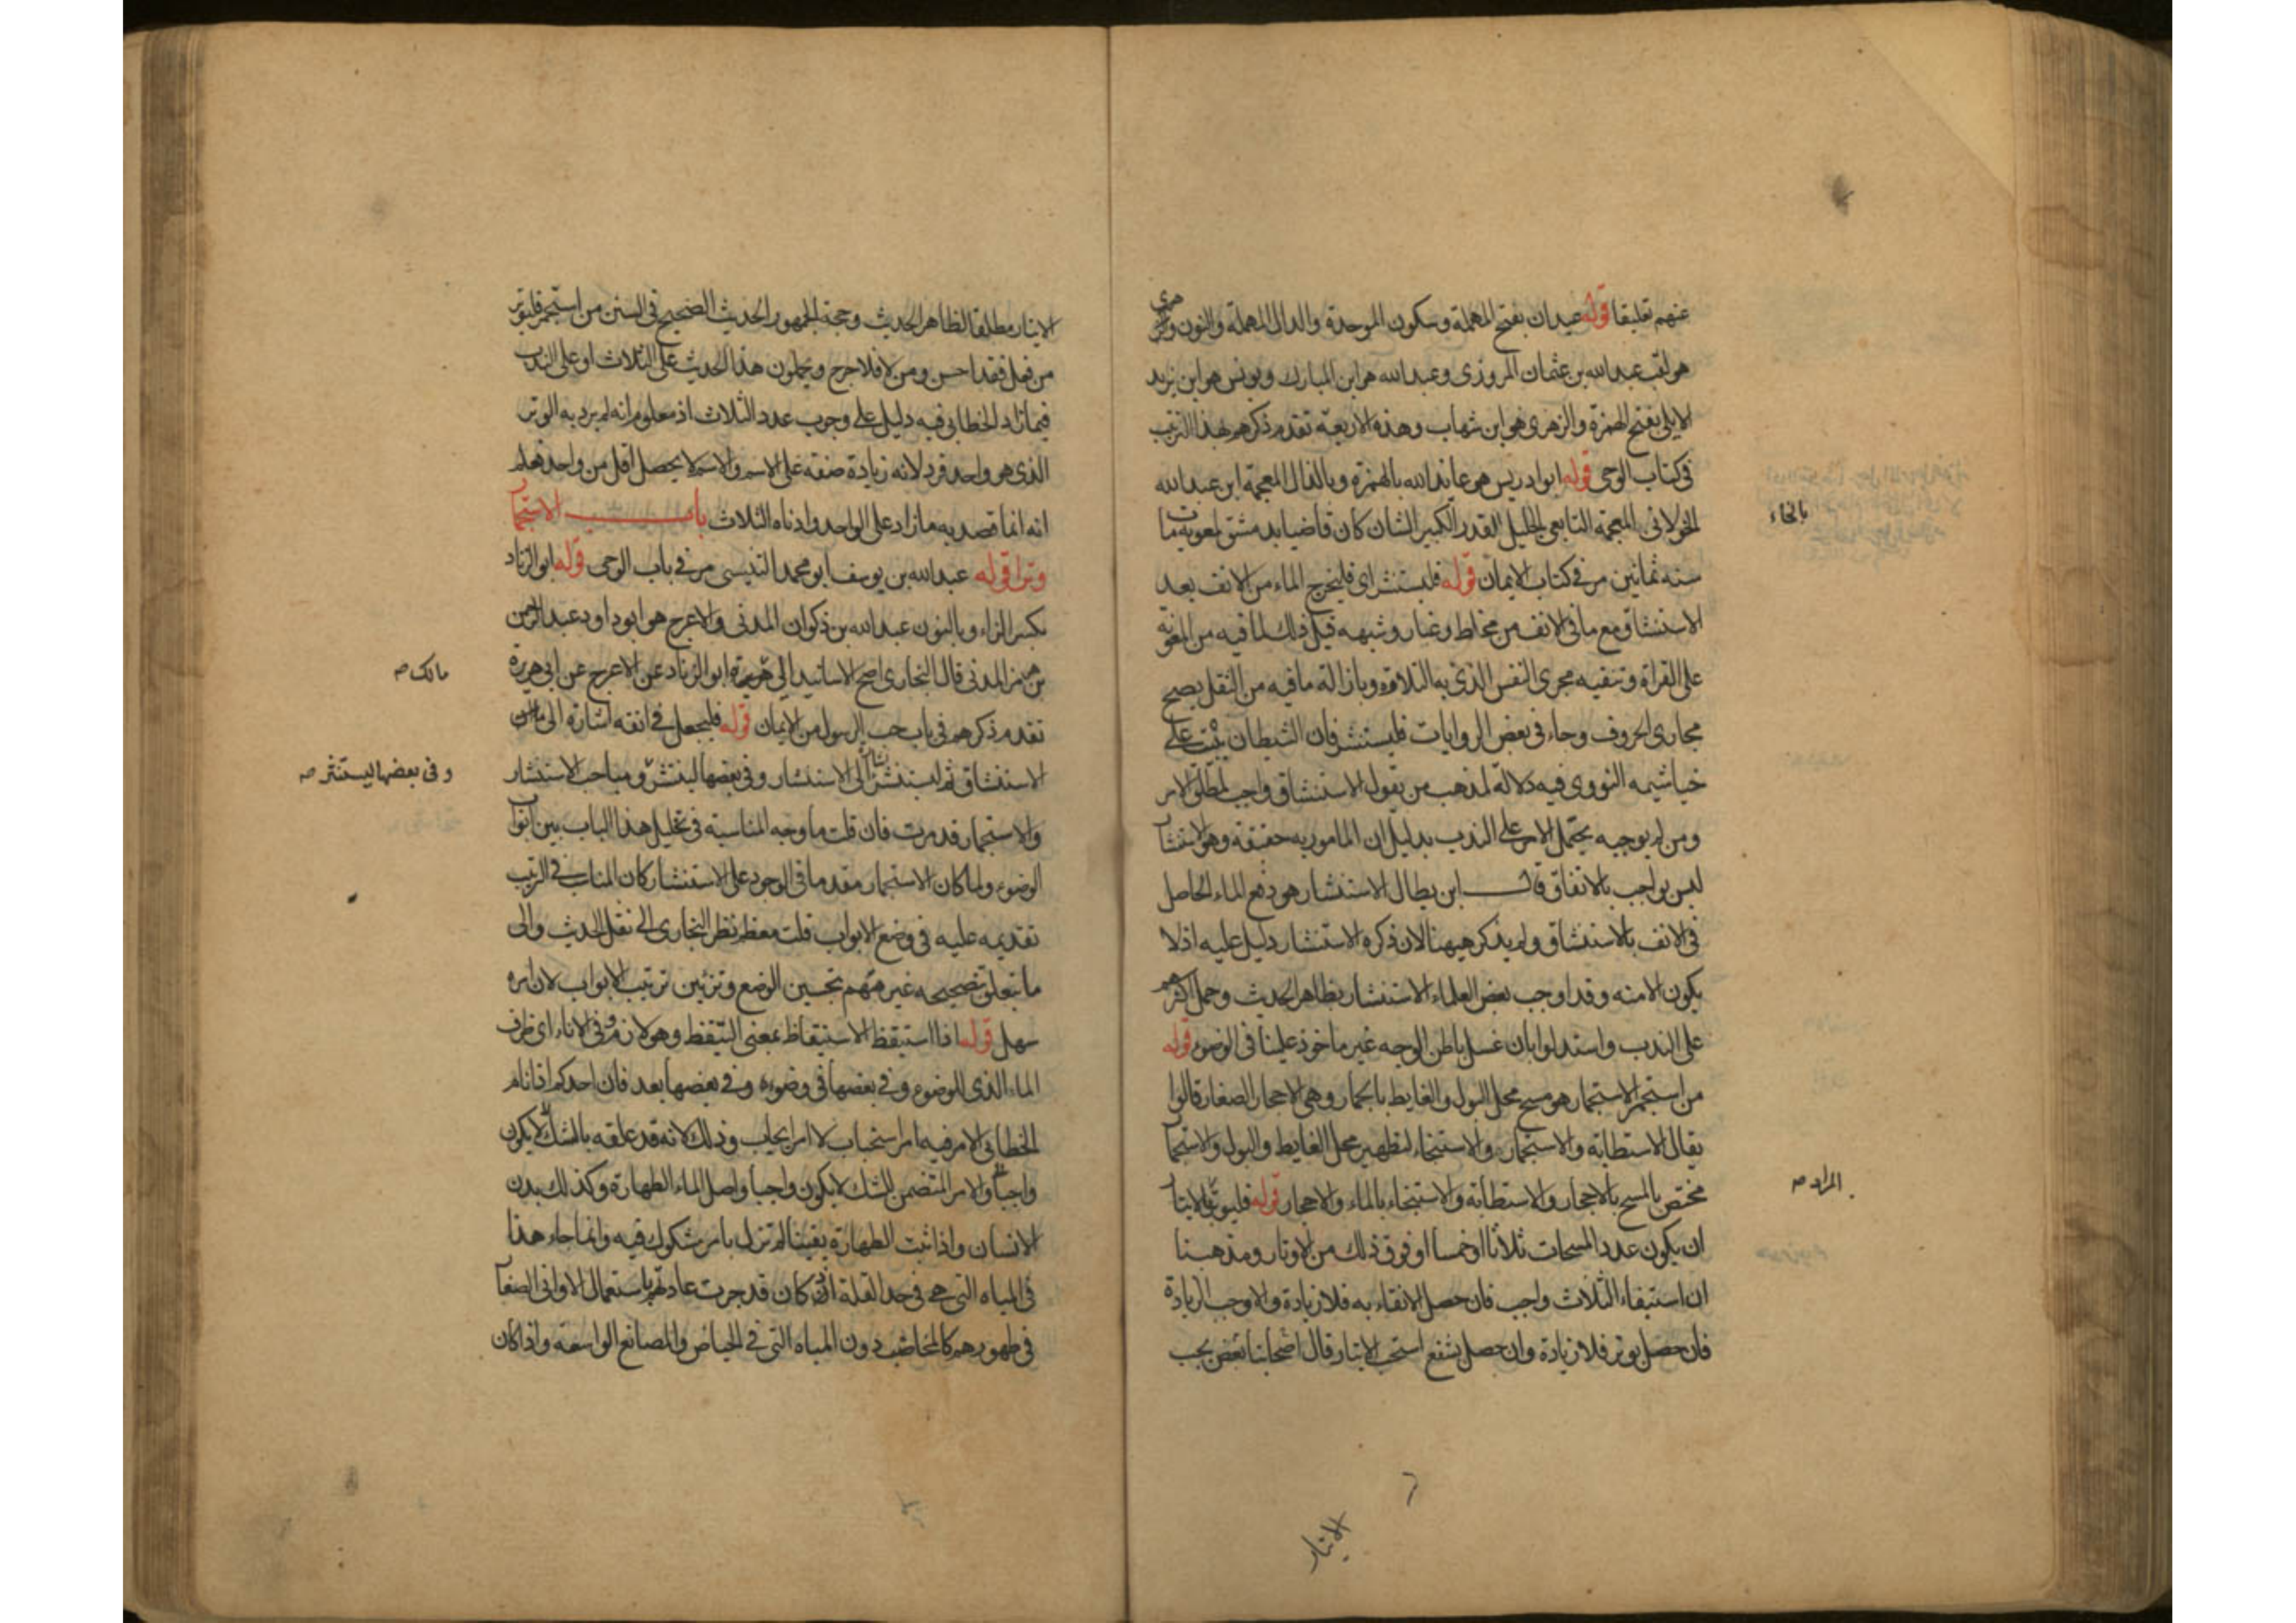 عنهم تعليقا قوله عبدان بفتح المهملة وسكون الموحدة والدال المهملة والنون
هو لقب عبد الله بن عثمان المروزى وعبد الله هو ابن المبارك ويونس هو ابن يزيد
الايلى بفتح الهمزة والزهرى هو ابن شهاب وهذه الاربعة تقدم ذكرهم بهذا الترتيب
فى كتاب الوحى قوله ابو ادريس هو عايذ الله بالهمزة وبالذال المعجمة ابن عبد الله
الخولانى المعجمة التابعى الجليل القدر الكبير الشان كان قاضيا بدمشق لمعوية مات
بالخاء
سنه ثمانين مر فى كتاب الايمان قوله فليستنثر اى فليخرج الماء من الانف بعد
الاستنشاق مع ما فى الانف من مخاط وغبار وشبهه قيل ذلك لما فيه من المعونة
على القراة وتنقيه مجرى النفس الذى به التلاوة وبازالة ما فيه من الثقل يصح
مجارى الحروف وجاء فى بعض الروايات فليستنثر فان الشيطان يبيت على
خياشيمه النووى فيه دلالة لمذهب من يقول الاستنشاق واجب لمطلق الامر
ومن لم يوجبه يحمل الامر على الندب بدليل ان المامور به حقيقة وهو الانتشار
ليس بواجب بالاتفاق قال ابن بطال الاستنثار هو دفع الماء الحاصل
فى الانف بالاستنشاق ولم يذكر هيهنا لان ذكره الاستنثار دليل عليه اذ لا
يكون الا منه وقد اوجب بعض العلماء الاستنثار بظاهر الحديث وحمل اكثرهم
على الندب واستدلوا بان غسل باطن الوجه غير ماخوذ علينا فى الوضوء قوله
من استجمر الاستجمار هو مسح محل البول والغايط بالجمار وهى الاحجار الصغار قالوا
يقال الاستطابة والاستجمار والاستنجاء لتطهير محل الغايط والبول والاستجمار
مختص بالمسح بالاحجار والاستطابة والاستنجاء بالماء والاحجار قوله فليوتر الايتار
المراد صح
ان يكون عدد المسحات ثلاثا او خمسا او فوق ذلك من الاوتار ومذهبنا
ان استيفاء الثلاث واجب فان حصل الانقاء به فلا زيادة والا وجب الزيادة
فان حصل بوتر فلا زيادة وان حصل بشفع استحب الايتار قال اصحابنا بعض يجب
الايتار
الايتار مطلقا لظاهر الحديث وحجة الجمهور الحديث الصحيح فى السنن من استجمر فليوتر
من فعل فقد احسن ومن لا فلا حرج ويحملون هذا الحديث على الثلاث او على الندب
فيما زاد الخطابى فيه دليل على وجوب عدد الثلاث اذ معلوم انه لم يرد به الوتر
الذى هو واحد فرد لانه زيادة صفة على الاسم والاسم لا يحصل اقل من واحد فعلم
انه انما قصد به ما زاد على الواحد وادناه الثلاث باب الاستجمار
وترا قوله عبد الله بن يوسف ابو محمد التنيسى مر فى باب الوحى قوله ابو الزناد
بكسر الزاء وبالنون عبد الله بن ذكوان المدنى والاعرج هو ابو داود عبد الرحمن
بن هرمز المدنى قال البخارى اصح الاسانيد الى هريرة ابو الزناد عن الاعرج عن ابى هريرة
مالك صح
تقدم ذكرهم فى باب حب الرسول من الايمان قوله فليجعل فى انفه اشارة الى
الاستنشاق ثم ليستنثر اشارة الى الاستنثار وفى بعضها لينتثر ومباحث الاستنثار
وفى بعضها ليستنثر صح
والاستجمار قد مرت فان قلت ما وجه المناسبة فى تخليل هذا الباب بين ابواب
الوضوء ولما كان الاستجمار مقدما فى الوجود على الاستنثار كان المناسب فى الترتيب
تقديمه عليه فى وضع الابواب قلت معظم نظر البخارى الى نقل الحديث والى
ما يتعلق بتصحيحه غير مهتم بتحسين الوضع وتزئين ترتيب الابواب لان امره
سهل قوله اذا استيقظ الاستيقاظ بمعنى التيقظ وهو لازم وفى الاناء اى ظرف
الماء الذى للوضوء وفى بعضها فى وضوءه وفى بعضها بعد فان احدكم اذا نام
الخطابى الامر فيه امر استحباب لا امر ايجاب وذلك لانه قد علقه بالشك لا يكون
واجبا والامر المتضمن للشك لا يكون واجبا واصل الماء الطهارة وكذلك بدن
الانسان واذا ثبت الطهارة يقينا لم تزل بامر مشكوك فيه وانما جاء هذا
فى المياه التى هى فى حد القلة اذ كان قد جرت عادتهم باستعمال الاوانى الصغار
فى طهورهم كالمخاضب دون المياه التى فى الحياض والمصانع الواسعه واذا كان